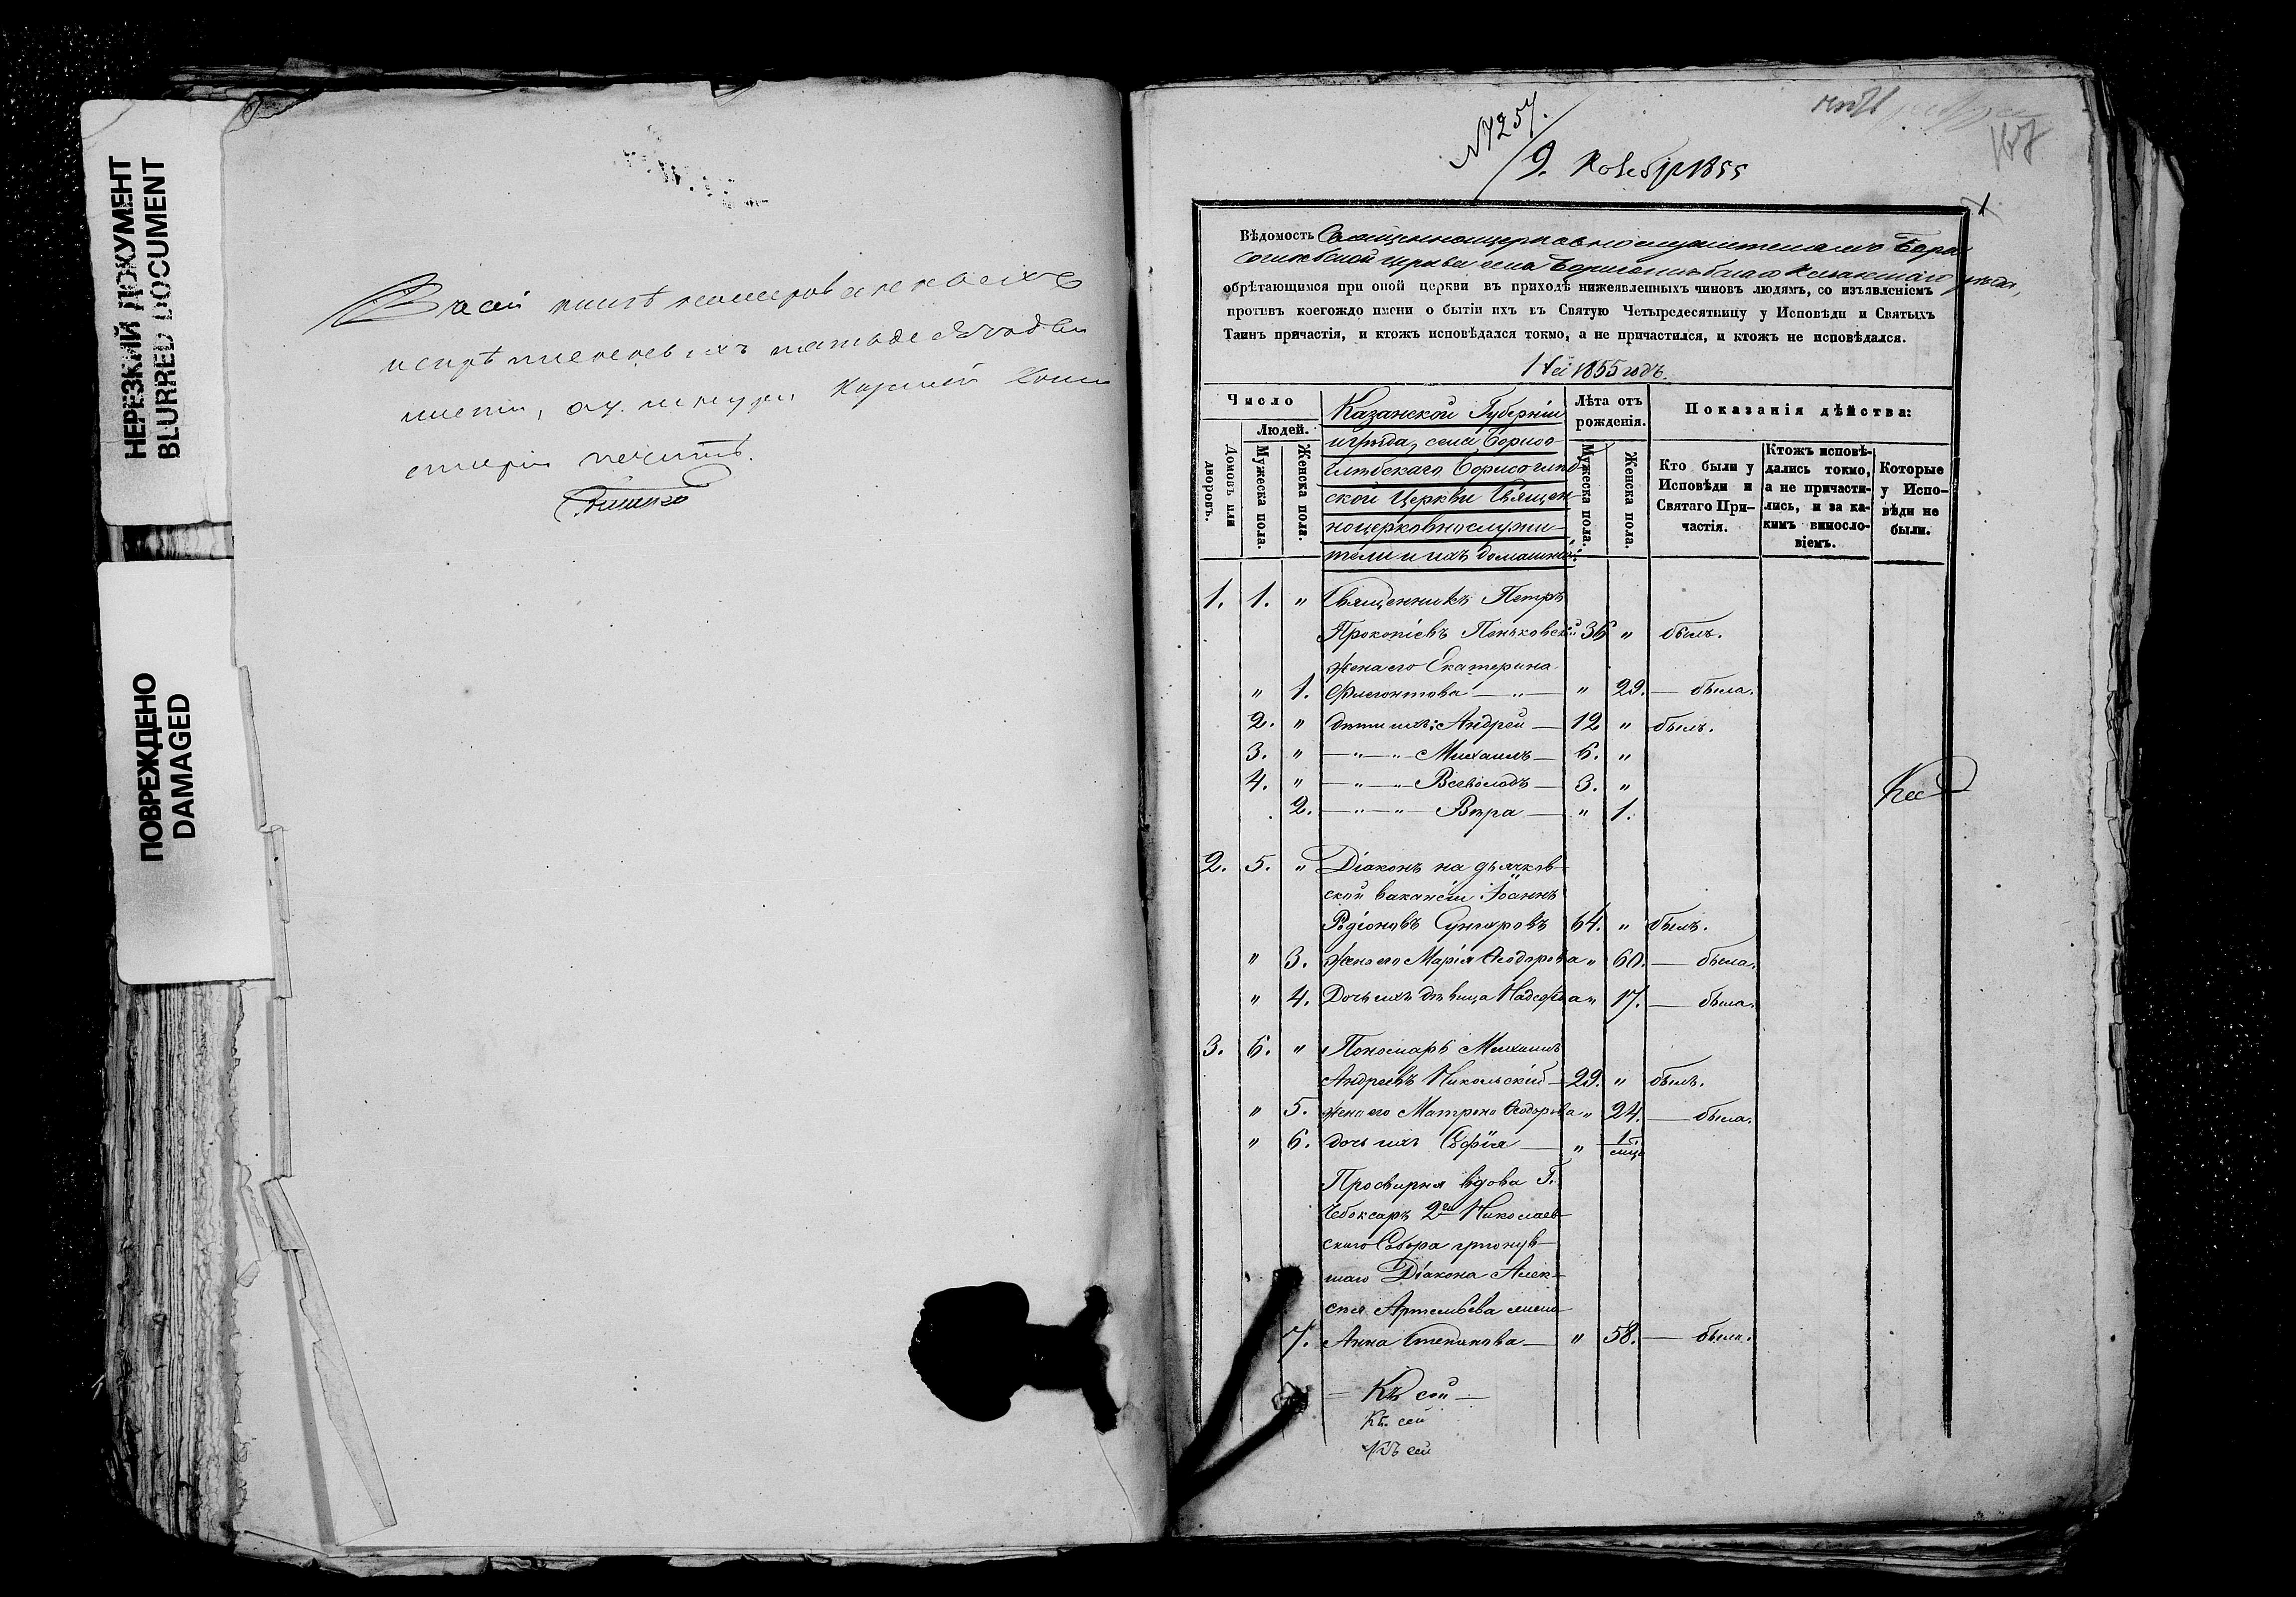 НЕРЕЗКИЙ ДОКУМЕНТ
BLURRED DOCUMENT
ПОВРЕЖДЕНО
DAMAGED
В сей книгѣ нумерованныхъ
листа,
печать.
№ 257.
9. Ноября 1855
Вѣдомость Священноцерковнослужителямъ Борисо
глѣбской церкви села Борисоглѣбскаго Казанскаго уѣзда,
обрѣтающимся при оной церкви въ приходѣ нижеявленныхъ чиновъ людямъ, со изъявленіемъ
противъ коегождо имени о бытіи ихъ въ Святую Четыредесятницу у Исповѣди и Святыхъ
Таинъ причастія, и ктожъ исповѣдался токмо, а не причастился, и ктожъ не исповѣдался.
1855 годъ.
Число
Людей.
Домовъ или дворовъ.
Мужеска пола.
Женска пола.
Казанской Губерніи
и уѣзда, села Борисо-
глѣбскаго Борисоглѣб-
ской Церкви Священ-
ноцерковнослужи-
тели и ихъ домашніе:
Лѣта отъ рожденія.
Мужеска пола.
Женска пола.
Показанія дѣйства:
Кто были у Исповѣди и Святаго Причастія.
Ктожъ исповѣдались токмо, а не причастились, и за какимъ винословіемъ.
Которые у Исповѣди не были.
1. 1. " Священникъ Петръ
Прокопіевъ Пеньковскій 36 " былъ.
Жена его Екатерина
" 1. Флегонтова — " — " 29. — была.
2. " дѣти ихъ: Андрей — 12 " былъ.
3. " — " — " Михаилъ — 6. "
4. " — " — " Всеволодъ — 3. "
2. — " — " — Вѣра — " 1.
2. 5. " Діаконъ на дьячков-
ской вакансіи Іоаннъ
Родіоновъ Сунгуровъ 64. " былъ.
" 3. Жена его Марія Ѳеодорова " 60. — была.
" 4. Дочь ихъ дѣвица Надежда " 17. — была.
3. 6. " Пономарь Михаилъ
Андреевъ Никольскій — 29. " былъ.
" 5. жена его Матрона Ѳеодорова " 24. — была.
" 6. дочь ихъ Софія — " 1 мѣц.
Просвирня вдова Г.
Чебоксаръ 2го Николаев-
скаго Собора
шаго Діакона Алек-
сѣя Артемьева жена
7. Анна Степанова — " 58. — была.
— Къ сей —
Къ сей
Къ сей